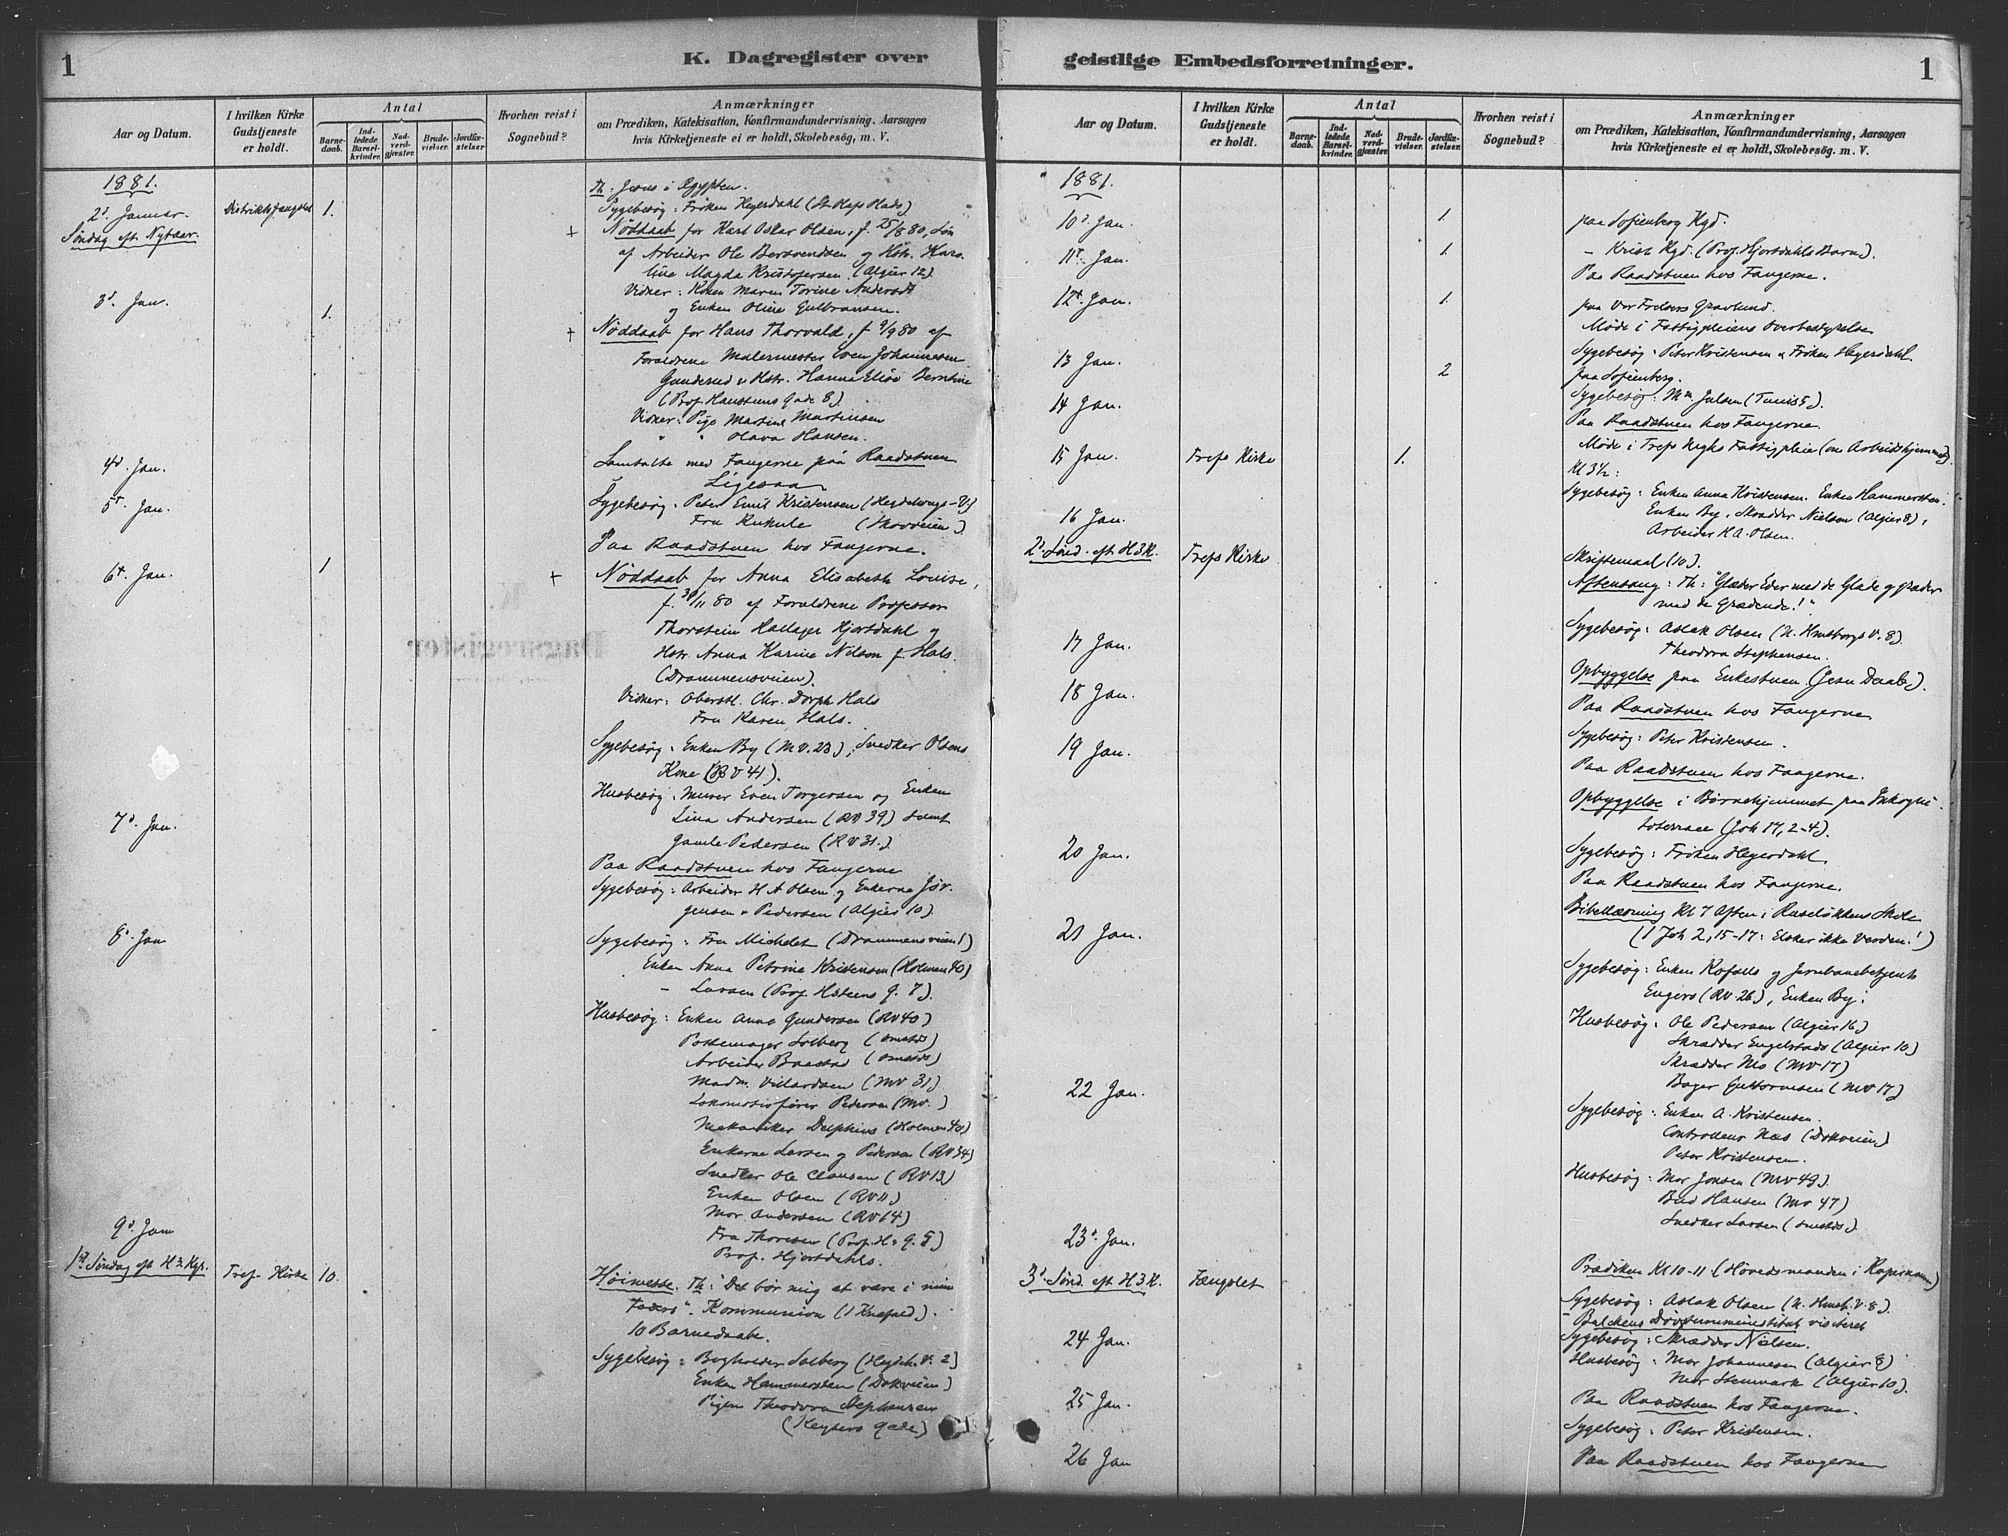 1
K. Dagregister over
Aar og Datum.
I hvilken Kirke Gudstjeneste er holdt.
Antal
Barnedaab.
Indledede Barselkvinder.
Nadverdgjæster.
Brudevielser.
Jordfæstelser
Hvorhen reist i Sognebud?
Anmærkninger
om Prædiken, Katekisation, Konfirmandundervisning, Aarsagen
hvis Kirketjeneste ei er holdt, Skolebesög, m. V.
1881.
Th. Jesus i Ægypten.
2d. Januar. Distriktsfængslet 1.
Sygebesøg: Frøken Heyerdahl (St. Olafs Plads).
Søndag eft. Nytaar.
+ Nøddaab for Karl Oskar Olsen, f. 25/8 80, Søn
af Arbeider Ole Berovendsen og Hstr. Karo-
line Magda Kristofersen. (Algier 12).
3d. Jan.
Vidner: Konen Maren Torine Andersdt
1.
og Enken Oline Gulbransen.
+ Nøddaab for Hans Thorvald, f. 9/9 80 af
Forældrene Malermester Even Johannesen
Gunderud & Hstr. Hanna Elise Berntine
(Prof. Hansteens Gade 8).
Vidner: Pige Martine Martinsen
" " Olava Hansen.
4d. Jan.
Samtalte med Fangerne paa Raadstuen
Ligesaa
5t. Jan.
Sygebesøg: Peter Emil Kristensen (Hegdehaugs-V)
Fru Kukule (Skovveien)
Paa Raadstuen hos Fangerne.
6t. Jan. 1
+ Nøddaab for Anna Elisabeth Louise,
f. 30/11 80 af Forældrene Professor
Thorstein Hallager Hjortdahl og
Hstr. Anna Karine Nilson f. Hals.
(Drammensveien).
Vidner: Oberstl. Chr. Dorph Hals
Fru Karen Hals.
Sygebesøg: Enken By (M.V. 23), Snedker Olsens
Kone (RV 41).
Husbesøg: Murer Even Torgersen og Enken
7d. Jan.
Lina Andersen (RV 39) samt
Gamle Pedersen (RV 31.)
Paa Raadstuen hos Fangerne
Sygebesøg: Arbeider H A Olsen og Enkerne Jør-
gensen & Pedersen (Algier 10)
8d. Jan
Sygebesøg: Fru Michelet (Drammensveien 1)
Enken Anna Petrine Kristensen (Holmen 40)
– Larsen (Prof. Hsteens G. 7).
Husbesøg: Enken Anne Gundersen (RV 40)
Pottemager Solberg (smstds)
Arbeider Baastad (smstds)
Madm. Villardsen (MV 31)
Lokomotivfører Pedersen (MV. )
Mekaniker Delphius (Holmen 40)
Enkerne Larsen og Pedersen (RV 34)
Snedker Ole Clausen (RV 13)
Enken Olsen (RV 11)
Mor Andersen (RV 64)
9d. Jan
Fru Thoresen (Prof. Hs G. 5)
Prof. Hjortdahls.
1st. Søndag eft. H 3 Kgr. Tref. Kirke 10.
Høimesse. Th: "Det bør mig at være i min
Faders". Kommunion (1 Knæfald).
10 Barnedaab.
Sygebesøg: Bogholder Solberg (Hegdeh. V. 2)
Enken Hammersten (Dokveien)
Pigen Theodora Stephensen
(Keysers Gade)
geistlige Embedsforretninger.
1
Aar og Datum.
I hvilken Kirke Gudstjeneste er holdt.
Antal
Barnedaab.
Indledede Barselkvinder.
Nadverdgjæster.
Brudevielser.
Jordfæstelser.
Hvorhen reist i Sognebud?
Anmærkninger
om Prædiken, Katekisation, Konfirmandundervisning, Aarsagen
hvis Kirketjeneste ei er holdt, Skolebesög. m. V.
1881.
10d. Jan. 1. paa Sofienberg Kgd.
11t. Jan. 1. – Krist Kgd. (Prof. Hjortdahls Barn).
Paa Raadstuen hos Fangerne.
12t. Jan. 1. paa Vor Frelsers Gravlund.
Møde i Fattigpleiens Overbestyrelse
Sygebesøg: Peter Kristensen & Frøken Heyerdahl.
13 Jan. 2 paa Sofienberg.
Sygebesøg: Mm Julsen (Tunis 5).
14 Jan.
Paa Raadstuen hos Fangerne
Møde i Trefs Meghs Fattigpleie (om Arbeidshjemmet).
15 Jan. Trefs Kirke 1.
Kl 3½:
Sygebesøg: Enken Anna Kristensen. Enken Hammersten.
16 Jan.
Enken By, Skrædder Nielsen (Algier 8),
Arbeider H A Olsen.
2d. Sønd. eft. H 3 K. Trefs Kirke
Skriftemaal (10).
Aftensang: Th: "Glæder Eder med de Glade og græder
med de Grædende!"
17 Jan.
Sygebesøg: Aslak Olsen (N. Hmsborgs V. 8)
Theodora Stephensen.
18 Jan.
Opbyggelse paa Enkestuen (Jesu Daab).
Paa Raadstuen hos Fangerne
19 Jan.
Sygebesøg: Peter Kristensen.
Paa Raadstuen hos Fangerne.
Opbyggelse i Børnehjemmet paa
terrace (Joh 17, 2-4).
20 Jan.
Sygebesøg: Frøken Heyerdahl.
Paa Raadstuen hos Fangerne.
21 Jan.
Bibellæsning Kl 7 Aften i Ruseløkkens Skole
(1 Joh 2, 15-17: Elsker ikke Verden!)
Sygebesøg: Enken Kofalls og Jernbanebetjent
Engers (RV 26), Enken By;
Husbesøg: Ole Pedersen (Algier 16)
Skrædder Engelstads (Algier 10)
Skrædder Nis (MV 17)
22 Jan.
Bager Guttormsen (MV 17)
Sygebesøg: Enken A. Kristensen.
Controlleur Næs (Dokveien)
Peter Kristensen.
Husbesøg: Mor Jonsen (MV 49).
Bud Hansen (MV 47)
Snedker Larsen (smstds.)
23d. Jan.
3d. Sønd. eft. H 3 K. Fængslet
Prædiken Kl 10-11 (Høvedsmanden i Kapernaum)
Sygebesøg: Aslak Olsen (N. Hmsb. V. 8).
24 Jan.
– Balchens Døvstummeinstitut visiteret
Sygebesøg: Skrædder Nielsen.
Husbesøg: Mor Johannesen (Algier 8)
Mor Stenmark (Algier 10).
25 Jan.
Paa Raadstuen hos Fangerne.
Sygebesøg: Peter Kristensen.
26 Jan
Paa Raadstuen hos Fangerne